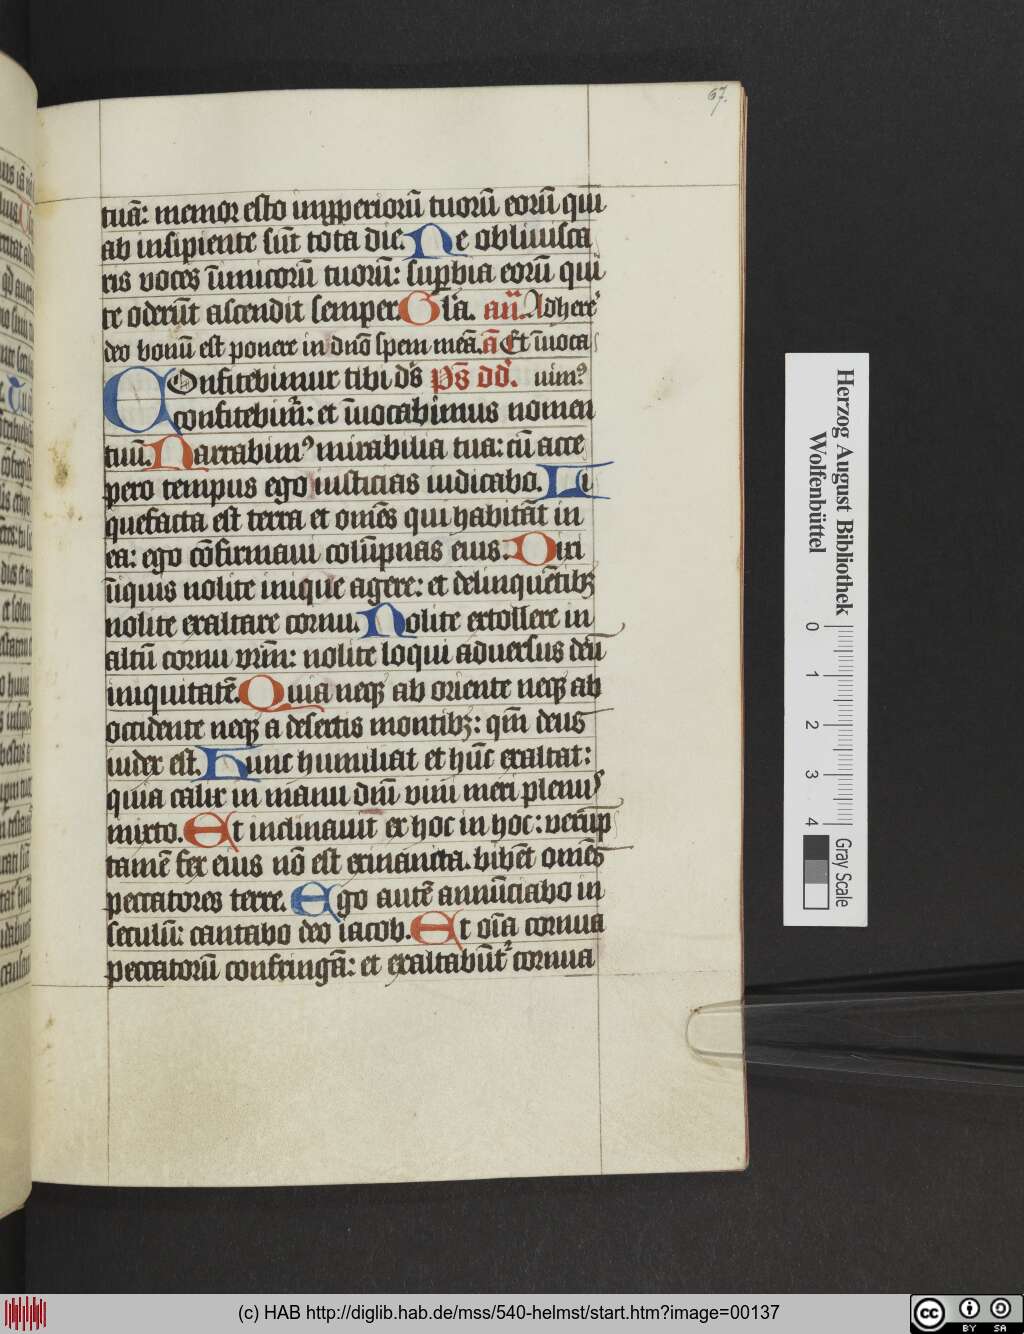 67.
tuā: memor esto inp̱periorū tuorū eorū qui
ab insipiente sūt tota die. Ne obliuisca
ris voces īimicorū tuorū: sup̱bia eorū qui
te oderūt ascendit semper. Gl'a. añ. Adhere'
deo bonū est ponere in dnō spem meā. ā Et īuoca
Confitebimur tibi ds̄ Ps̄ dd. uim⁹
confitebim̄: et īuocabimus nomen
tuū. Narrabim⁹ mirabilia tua: cū acce
pero tempus ego iusticias iudicabo. Li
quefacta est terra et om̄es qui habitāt in
ea: ego cōfirmaui colūpnas eius. Dixi
īiquis nolite inique agere: et delinquētibꝫ
nolite exaltare cornu. Nolite extollere in
altū cornu vr̄m: nolite loqui aduersus deū
iniquitatē. Quia neqꝫ ab oriente neqꝫ ab
occidente neqꝫ a desertis montibꝫ: qm̄ deus
iudex est. Hunc humiliat et hūc exaltat:
quia calix in manu dn̄i vini meri plenus
mixto. Et inclinauit ex hoc in hoc: verūp
tamē fex eius nō est exinanita. bibēt om̄es
peccatores terre. Ego autē annūciabo in
seculū: cantabo deo iacob. Et oīa cornua
peccatorū confringā: et exaltabūt᷑ cornua
Herzog August Bibliothek
Wolfenbüttel
0 1 2 3 4
Gray Scale
(c) HAB http://diglib.hab.de/mss/540-helmst/start.htm?image=00137
cc BY SA